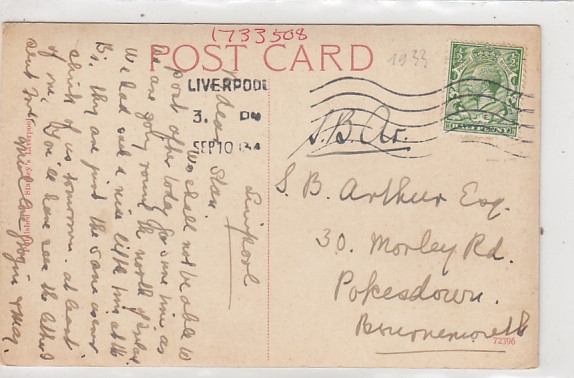 1733508
POST CARD
1933
LIVERPOOL
3. PM
SEP 10 34
S. B. Ar.
S. B. Arthur Esq.
30. Morley Rd.
Pokesdown.
Bournemouth
72396
Liverpool
Dear Stan
We shall not be able to
post after today for some time as
we are going round the north of
We had such a nice little time at the
B's. they are just the same as ever
think of us tomorrow. at least
of me. You'll have seen the others